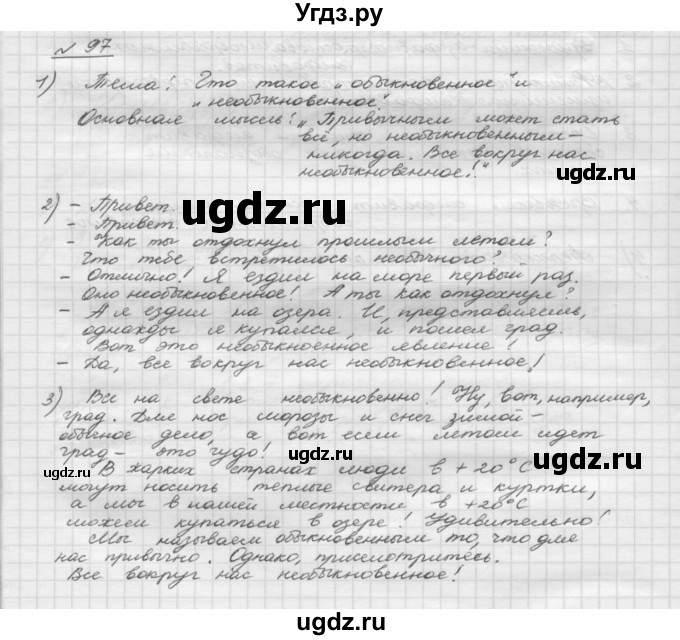 Угдз.ру
№ 97
1) Тема: Что такое „обыкновенное" и
„необыкновенное".
Основная мысль: „Привычным может стать
всё, но необыкновенным –
никогда. Все вокруг нас
необыкновенное!"
2) – Привет.
– Привет.
– Как ты отдохнул прошлым летом?
Что тебе встретилось необычного?
– Отлично! Я ездил на море первый раз.
Оно необыкновенное! А ты как отдохнул?
– А я ездил на озера. И, представляешь,
однажды я купался, и пошел град.
Вот это необыкноенное явление!
– Да, все вокруг нас необыкновенное!
3) Все на свете необыкновенно! Ну, вот, например,
град. Для нас морозы и снег зимой –
обычное дело, а вот если летом идет
град – это чудо!
В жарких странах люди в +20°C
могут носить теплые свитера и куртки,
а мы в нашей местности в +20°C
можем купаться в озере! Удивительно!
Мы называем обыкновенным то, что для
нас привычно. Однако, присмотритесь.
Все вокруг нас необыкновенное!
ugdz.ru
ugdz.ru
ugdz.ru
ugdz.ru
ugdz.ru
ugdz.ru
ugdz.ru